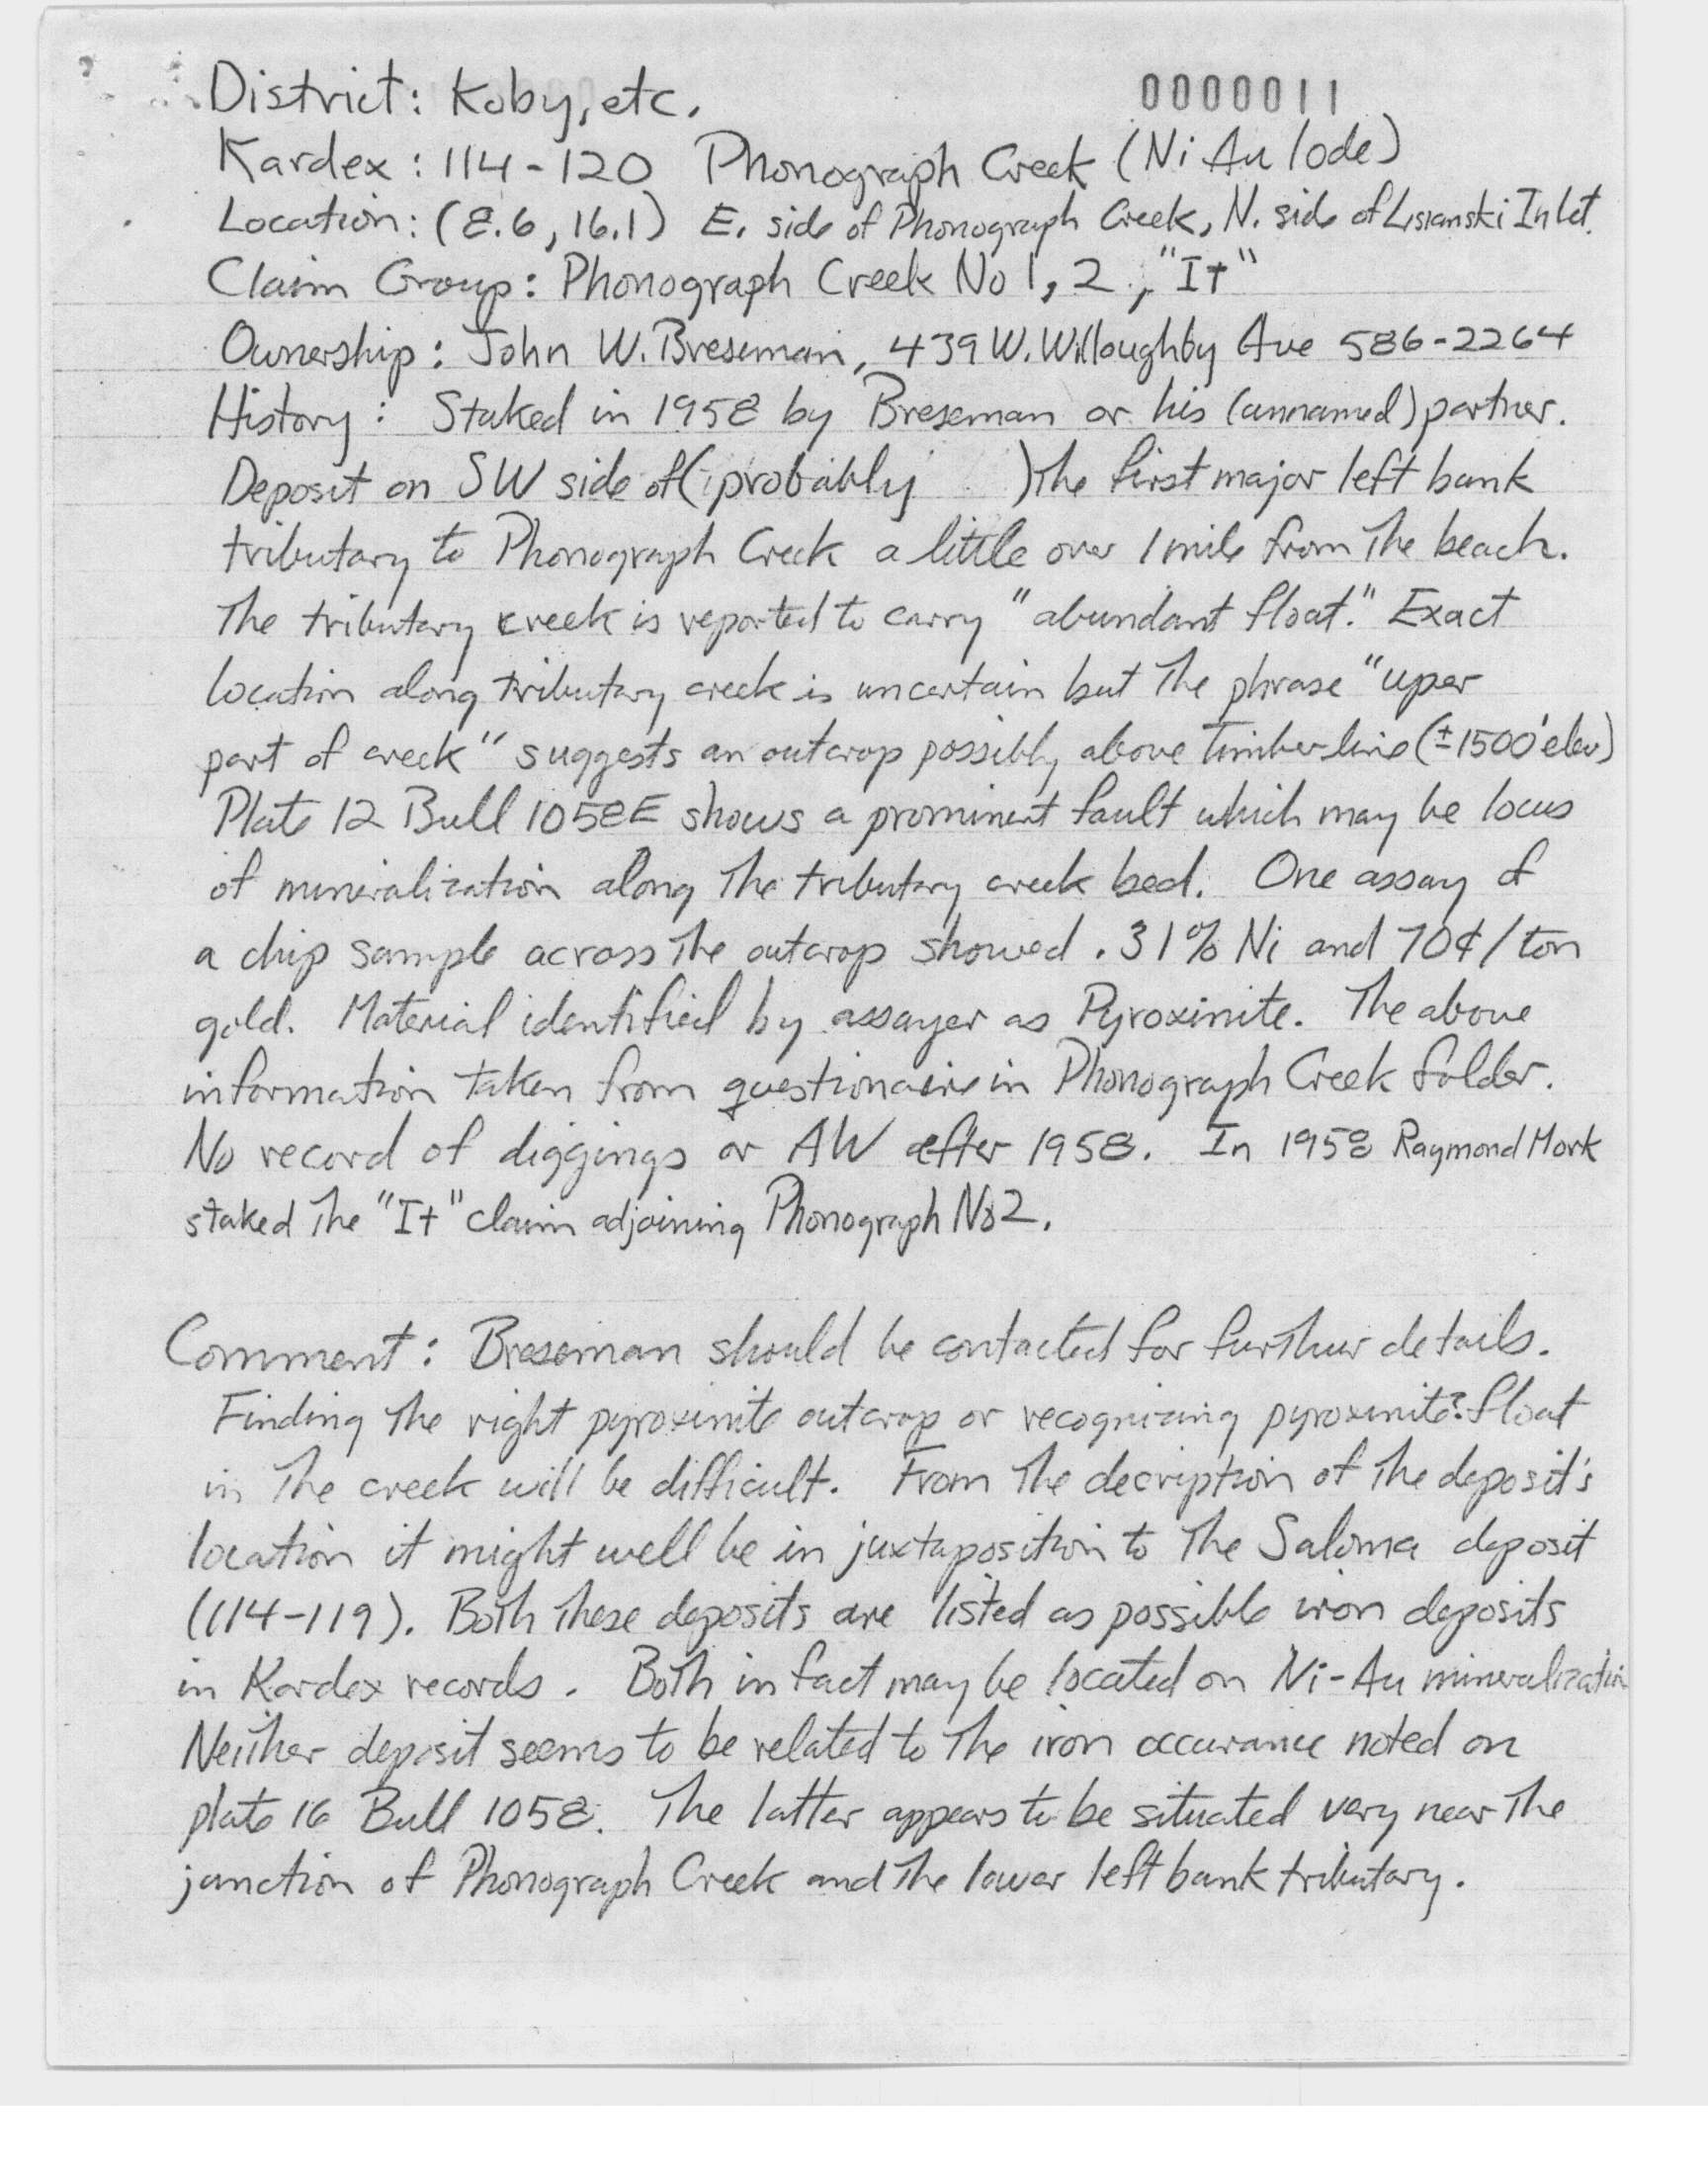 District: Koby, etc.
0000011
Kardex: 114-120 Phonograph Creek (Ni Au lode)
Location: (8.6, 16.1) E. side of Phonograph Creek, N. side of Lisianski Inlet.
Claim Group: Phonograph Creek No 1, 2, "It"
Ownership: John W. Breseman, 439 W. Willoughby Ave 586-2264
History: Staked in 1958 by Breseman or his (unnamed) partner.
Deposit on SW side of (probably ) The first major left bank
tributary to Phonograph Creek a little over 1 mile from The beach.
The tributary creek is reported to carry "abundant float." Exact
location along tributary creek is uncertain but The phrase "uper
part of creek" suggests an outcrop possibly above timberline (±1500' elev)
Plate 12 Bull 1058E shows a prominent fault which may be locus
of mineralization along The tributary creek bed. One assay of
a chip sample across The outcrop showed .31% Ni and 70¢/ton
gold. Material identified by assayer as Pyroxinite. The above
information taken from questionaire in Phonograph Creek folder.
No record of diggings or AW after 1958. In 1958 Raymond Mork
staked The "It" claim adjoining Phonograph No 2.
Comment: Breseman should be contacted for further details.
Finding The right pyroxinite outcrop or recognizing pyroxinite? float
in The creek will be difficult. From The decription of The deposit's
location it might well be in juxtaposition to The Saloma deposit
(114-119). Both These deposits are listed as possible iron deposits
in Kardex records. Both in fact may be located on Ni-Au mineralization
Neither deposit seems to be related to The iron occurance noted on
plate 16 Bull 1058. The latter appears to be situated very near The
junction of Phonograph Creek and The lower left bank tributary.